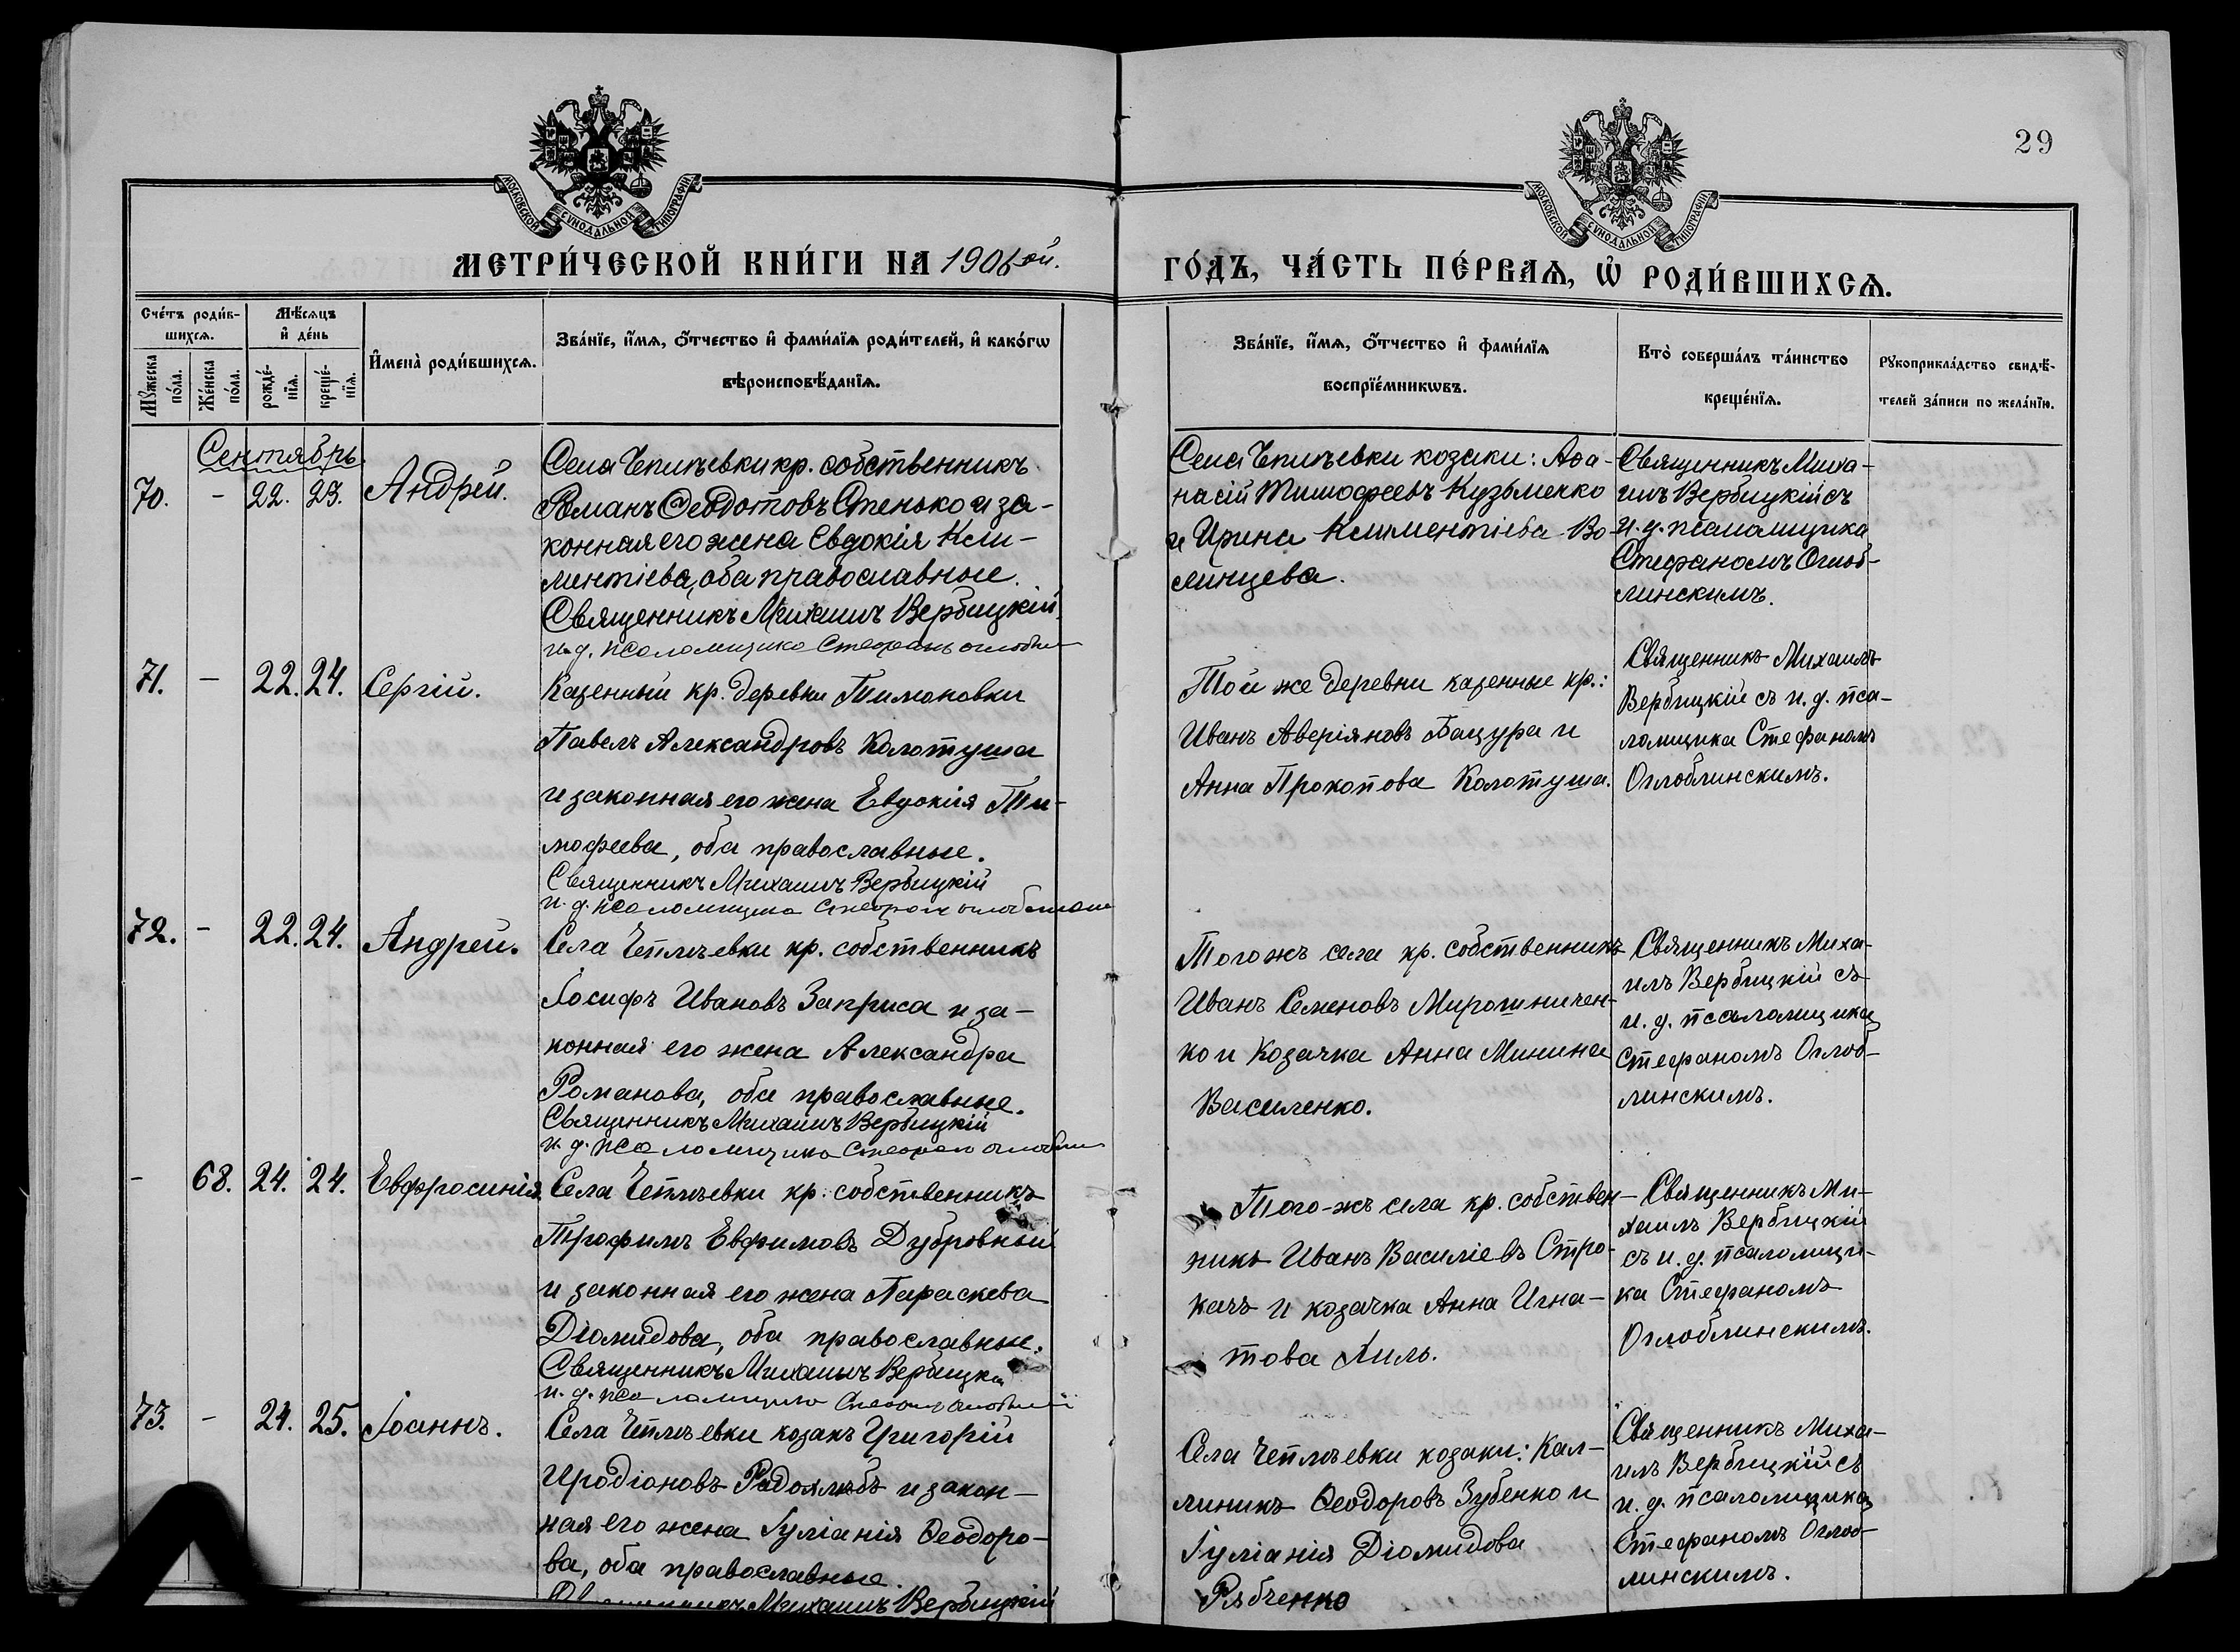 29
МОСКОВСКОЙ СѴНОДАЛЬНОЙ ТИПОГРАФІИ
МОСКОВСКОЙ СѴНОДАЛЬНОЙ ТИПОГРАФІИ
МЕТРИ́ЧЕСКОЙ КНИ́ГИ НА 1906 ой.
ГО́ДЪ, ЧА́СТЬ ПЕ́РВАѦ, Ѡ҆ РОДИ́ВШИХСѦ.
Сче́тъ роди́в-
шихсѧ.
Мѣ́сѧцъ
и҆ де́нь
Мꙋ́жеска по́ла.
Же́нска по́ла.
рожде́-
нїѧ.
креще́-
нїѧ.
И҆мена̀ роди́вшихсѧ.
Зва́нїе, и҆́мѧ, ѻ҆́тчество и҆ фами́лїѧ роди́телей, и҆ како́гѡ
вѣроисповѣ́данїѧ.
Зва́нїе, и҆́мѧ, ѻ҆́тчество и҆ фами́лїѧ
воспрїе́мникѡвъ.
Кто̀ соверша́лъ та́инство
креще́нїѧ.
Рꙋкоприкла́дство свидѣ́-
телей за́писи по жела́нїю.
Сентябрь.
70. - 22. 23. Андрей.
Села Чепилѣевки кр. собственникъ
Романъ Ѳеодотовъ Стенько и за-
конная его жена Евдокія Кли-
ментіева, оба православные.
Священникъ Михаилъ Вербицкій
и. д. псаломщика Стефанъ
Села Чепилѣевки козаки: Аѳа-
насій Тимофеевъ Кузьменко
и Ирина Климентіева Во-
линцева.
Священникъ Миха-
илъ Вербицкій съ
и. д. псаломщика
Стефаномъ Оглоб-
линскимъ.
71. - 22. 24. Сергій.
Казенный кр. деревни Тимоновки
Павелъ Александровъ Колотуша
и законная его жена Евдокія Ти-
мофеева, оба православные.
Священникъ Михаилъ Вербицкій
и. д. псаломщика Стефанъ
Той же деревни казенные кр.:
Иванъ Аверіяновъ Бацура и
Анна Прокопова Колотуша.
Священникъ Михаилъ
Вербицкій съ и. д. пса-
ломщика Стефаномъ
Оглоблинскимъ.
72. - 22. 24. Андрей.
Села Чепилѣевки кр. собственникъ
Іосифъ Ивановъ Заприса и за-
конная его жена Александра
Романова, оба православные.
Священникъ Михаилъ Вербицкій
и. д. псаломщика Стефанъ
Того жъ села кр. собственникъ
Иванъ Семеновъ Мирошничен-
ко и козачка Анна Минина
Василенко.
Священникъ Миха-
илъ Вербицкій съ
и. д. псаломщика
Стефаномъ Оглоб-
линскимъ.
- 68. 24. 24. Евфросинія.
Села Чепилѣевки кр. собственникъ
Трофимъ Евфимовъ Дубровный
и законная его жена Параскева
Діомидова, оба православные.
Священникъ Михаилъ Вербицкій
и. д. псаломщика
Того-жъ села кр. собствен-
никъ Иванъ Василіевъ Стро-
качъ и козачка Анна Игна-
това
Священникъ Ми-
хаилъ Вербицкій
съ и. д. псаломщи-
ка Стефаномъ
Оглоблинскимъ.
73. - 24. 25. Іоаннъ.
Села Чепилѣевки козакъ Григорій
Иродіоновъ и закон-
ная его жена Іуліанія Ѳеодоро-
ва, оба православные.
Священникъ Михаилъ Вербицкій
Села Чепилѣевки козаки: Кал-
линикъ Ѳеодоровъ Зубенко и
Іуліанія Діомидова
Рябченко
Священникъ Миха-
илъ Вербицкій съ
и. д. псаломщика
Стефаномъ Оглоб-
линскимъ.